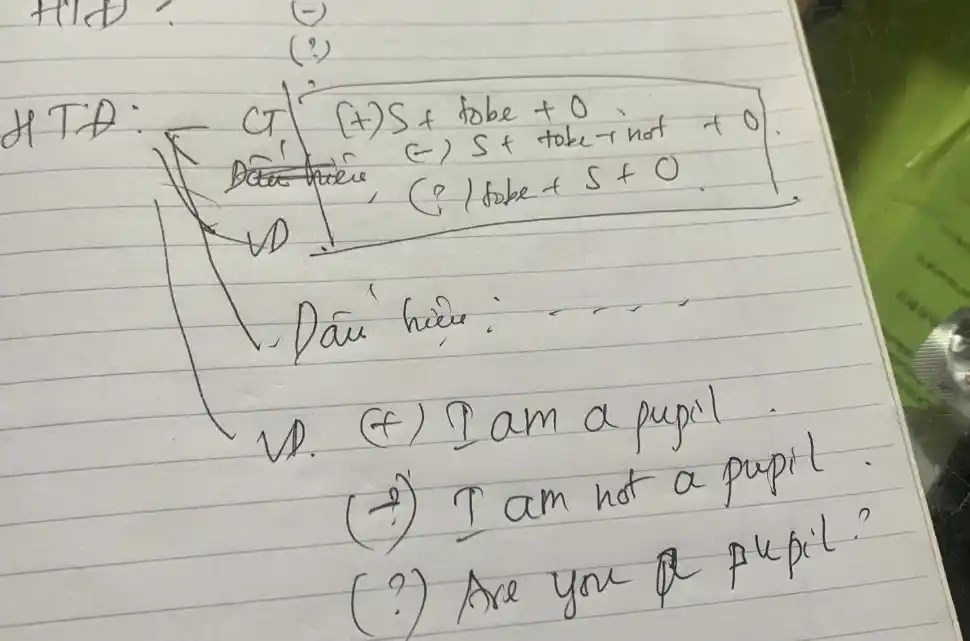 HTD?
(-)
(?)
HTD:
CT (+) S + tobe + O
(-) S + tobe + not + O.
Dấu hiệu, (?) tobe + S + O.
VD
- Dấu hiệu: - - - -
VD. (+) I am a pupil.
(-) I am not a pupil.
(?) Are you a pupil?